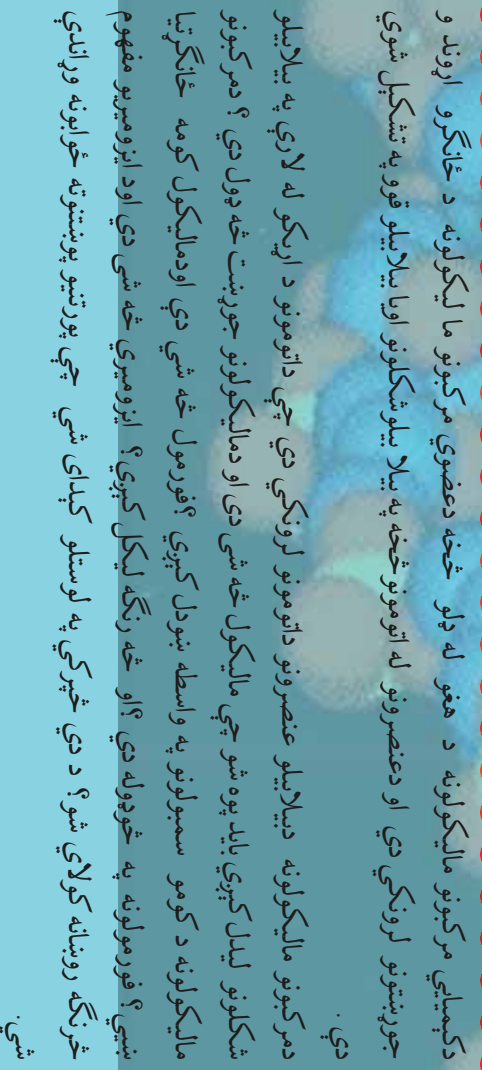 دکیمیایي مرکبونو مالیکولونه د هغو له ډلو څخه دعضوي مرکبونو ما لیکولونه د ځانګړو اړوند و
جوړښتونو لرونکي دي او دعنصرونو له اتومونو څخه په بیلا بیلو شکلونو اوبا بیلابیلو قوو په تشکیل شوي
دي.
دمرکبونو مالیکولونه دبیلابیلو عنصرونو داتومونو لرونکي دي چې داتومونو د اړیکو له لارې په بیلابیلو
شکلونو لیدل کیږي باید پوه شو چې مالیکول څه شی دی او دمالیکولونو جوړښت څه ډول دي ؟ دمرکبونو
مالیکولونه د کومو سمبولونو په واسطه ښودل کیږي ؟فورمول څه شی دي اودمالیکول کومه ځانګړتیا
ښیي ؟ فورمولونه په څوډوله دي ؟او څه رنګه لیکل کیږي؟ ایزومیري څه شی دي اود ایزومیریو مفهوم
څرنګه روښانه کولای شو ؟ د دې څپرکي په لوستلو کیدای شي چې پورتنیو پوښتنو ته ځوابونه وړاندې
شي.